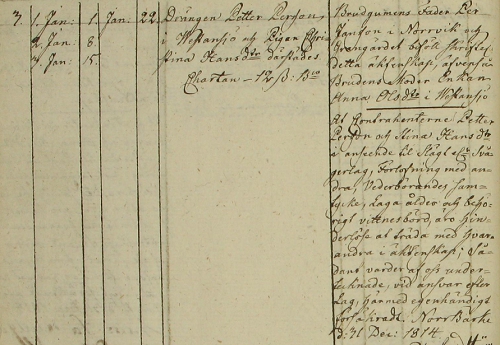 3. 1. Jan: 1. Jan: 22. Drängen Petter Person,
2. Jan: 8. i Westansjö och Pigan Chri-
3. Jan: 15. stina Hansdtr därstädes
Chartan – 12 ß: Bco
Brudgumens Fader Per
Janson i Norrvik och
Grangärdet besökt skriftel.
detta äktenskap, äfvensom
Brudens Moder Enkan
Anna Olsdtr i Westansjö
At Contrahenterne Petter
Person och Stina Hansdtr
i anseende til Slägt eller Svå-
gerlag, Förlofning med an-
dra, Vederbörandes Sam-
tycke, Laga ålder och behö-
rigt vittnesbörd, äro hin-
derlöse at träda med hvar-
andra i äktenskap; Så-
dant varder af oss under-
tecknade, vid ansvar efter
Lag, härmed egenhändigt
försäkradt. NorrBärke
d: 31 Dec: 1814.